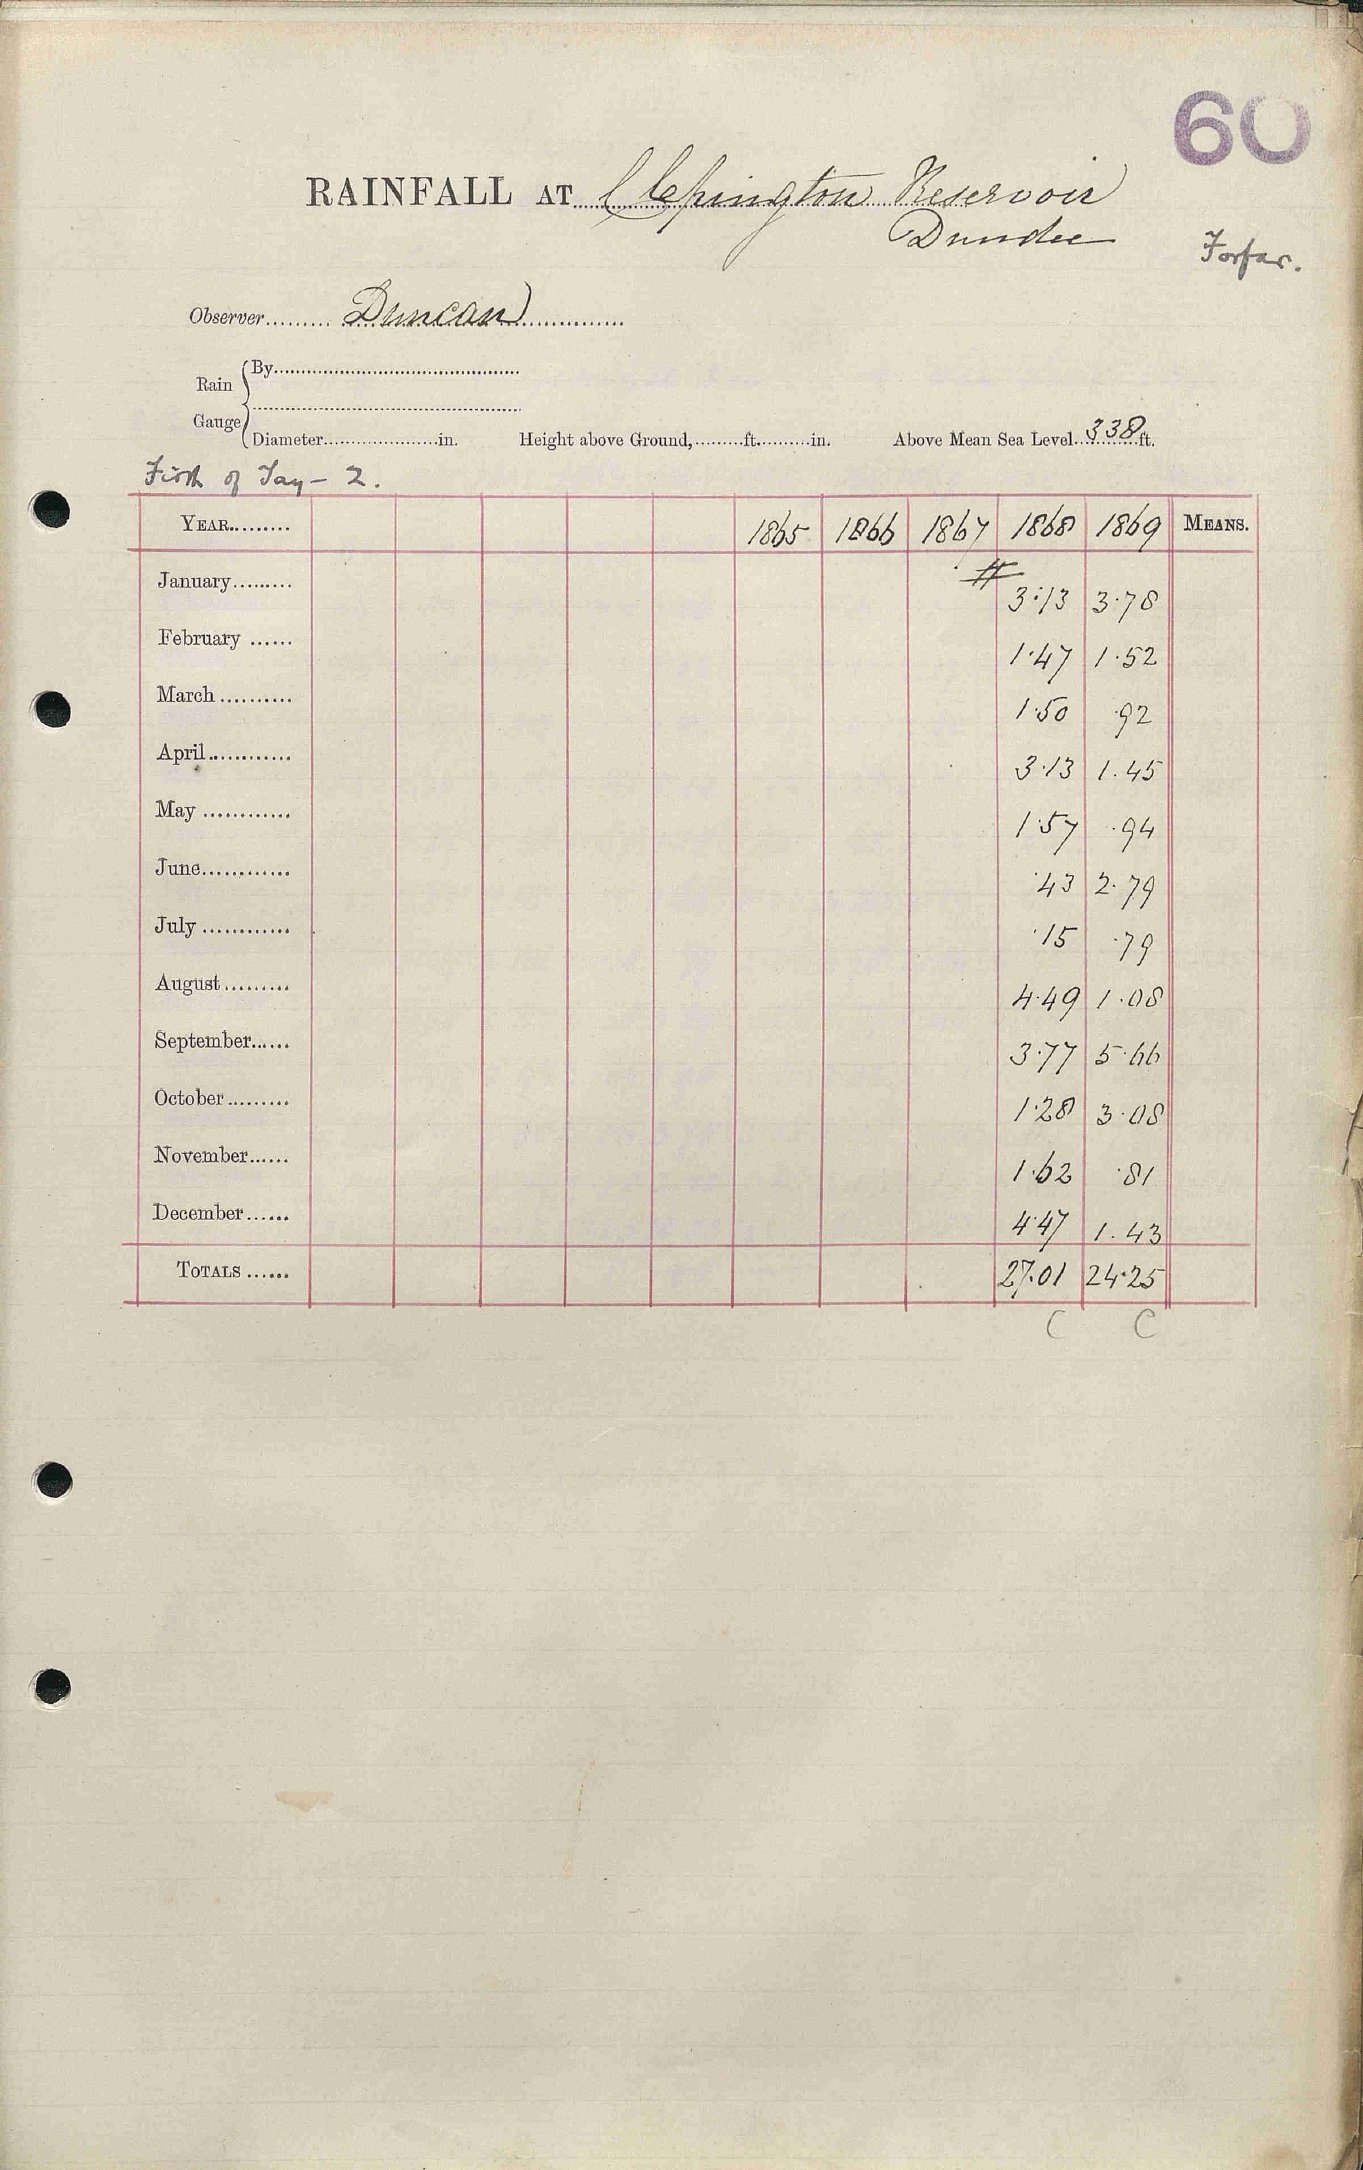 60
RAINFALL AT Clepington Reservoir
Dundee
Forfar.
Observer......... Duncan
Rain Gauge
By
Diameter in. Height above Ground, ft. in. Above Mean Sea Level 338 ft.
Firth of Tay - 2.
YEAR 1865 1866 1867 1868 1869 MEANS.
January # 3.13 3.78
February 1.47 1.52
March 1.50 .92
April 3.13 1.45
May 1.57 .94
June .43 2.79
July .15 .79
August 4.49 1.08
September 3.77 5.66
October 1.28 3.08
November 1.62 .81
December 4.47 1.43
TOTALS 27.01 24.25
C C